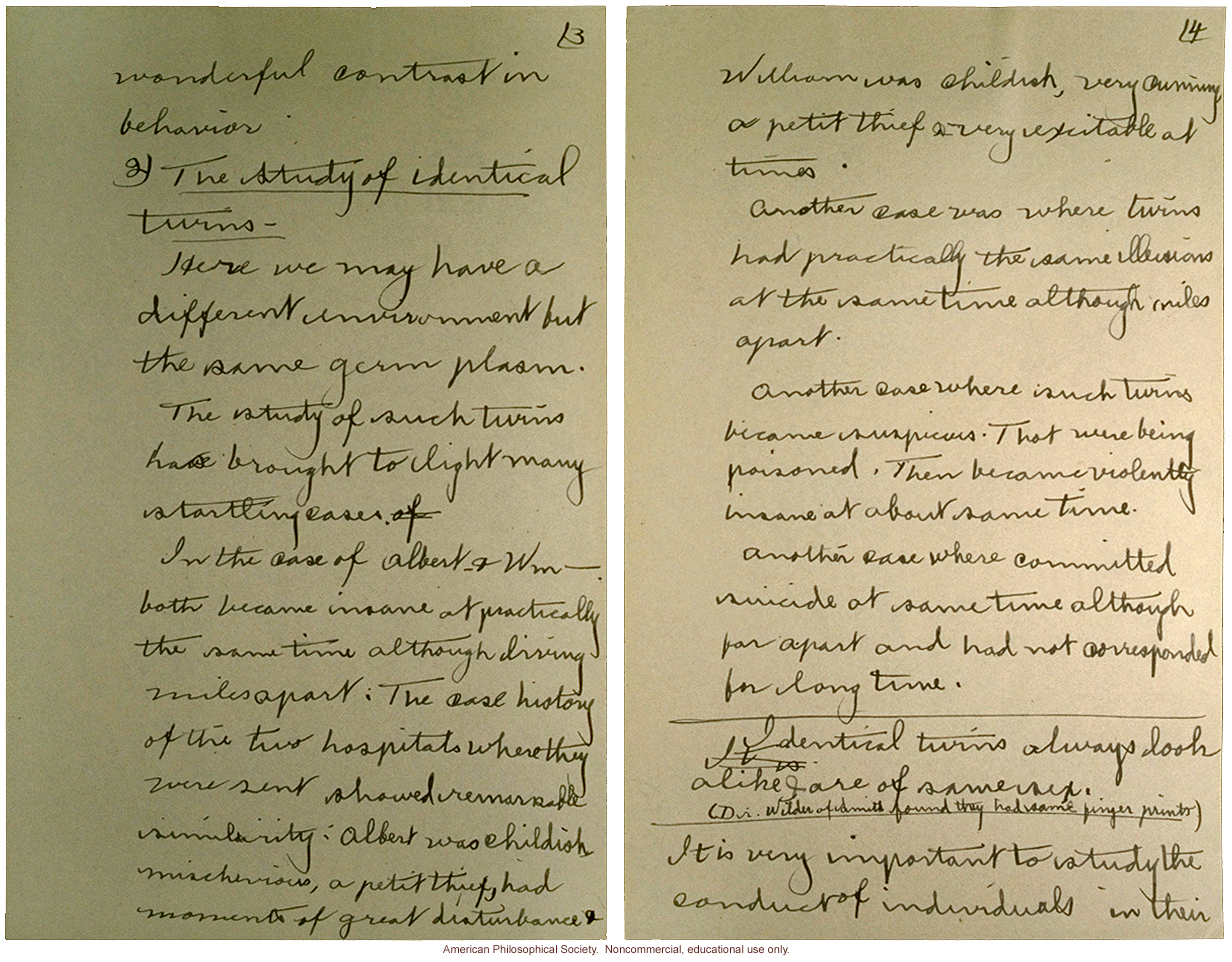 13
wonderful contrast in
behavior
2) The study of identical
twins-
Here we may have a
different environment but
the same germ plasm.
The study of such twins
have brought to light many
startling cases. of
In the case of Albert & Wm—
both became insane at practically
the same time although living
miles apart: The case history
of the two hospitals where they
were sent showed remarkable
similarity: Albert was childish
mischevious, a petit thief, had
moments of great disturbance &
14
William was childish, very cunning,
a petit thief & very excitable at
times.
Another case was where twins
had practically the same illusions
at the same time although miles
apart.
Another case where such twins
became suspicious. That were being
poisoned. Then became violently
insane at about same time.
Another case where committed
suicide at same time although
far apart and had not corresponded
for long time.
It is Identical twins always look
alike & are of same sex.
(Dr. Wilder of Smith found they had same finger prints)
It is very important to study the
conduct of individuals in their
American Philosophical Society. Noncommercial, educational use only.